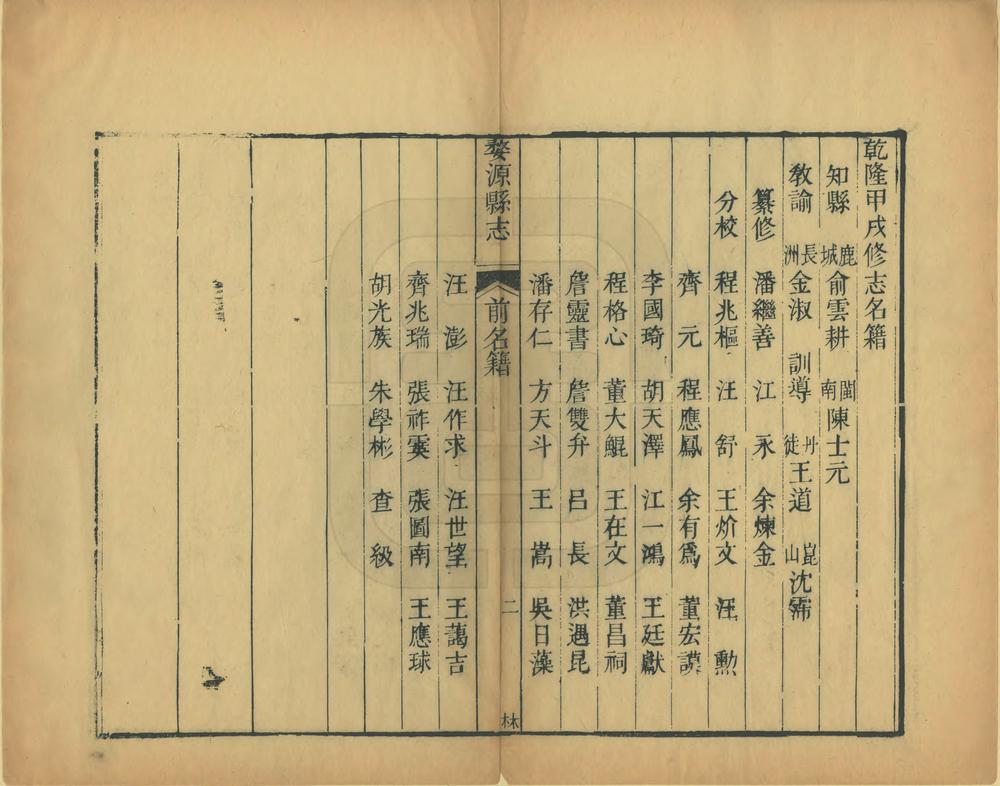 乾隆甲戌修志名籍
知縣 鹿城俞雲耕 閩南陳士元
教諭 長洲金淑 訓導 丹徒王道 崑山沈霈
纂修 潘繼善 江永 余煉金
分校 程兆樞 汪舒 王炌文 汪勲
齊元 程應鳳 余有爲 董宏謨
李國琦 胡天澤 江一鴻 王廷獻
程格心 董大鯤 王在文 董昌祠
詹靈書 詹雙弁 吕長 洪遇昆
潘存仁 方天斗 王嵩 吳日藻
婺源縣志 前名籍 二 林
汪澎 汪作求 汪世望 王藹吉
齊兆瑞 張祚 張圖南 王應球
胡光族 朱學彬 查級